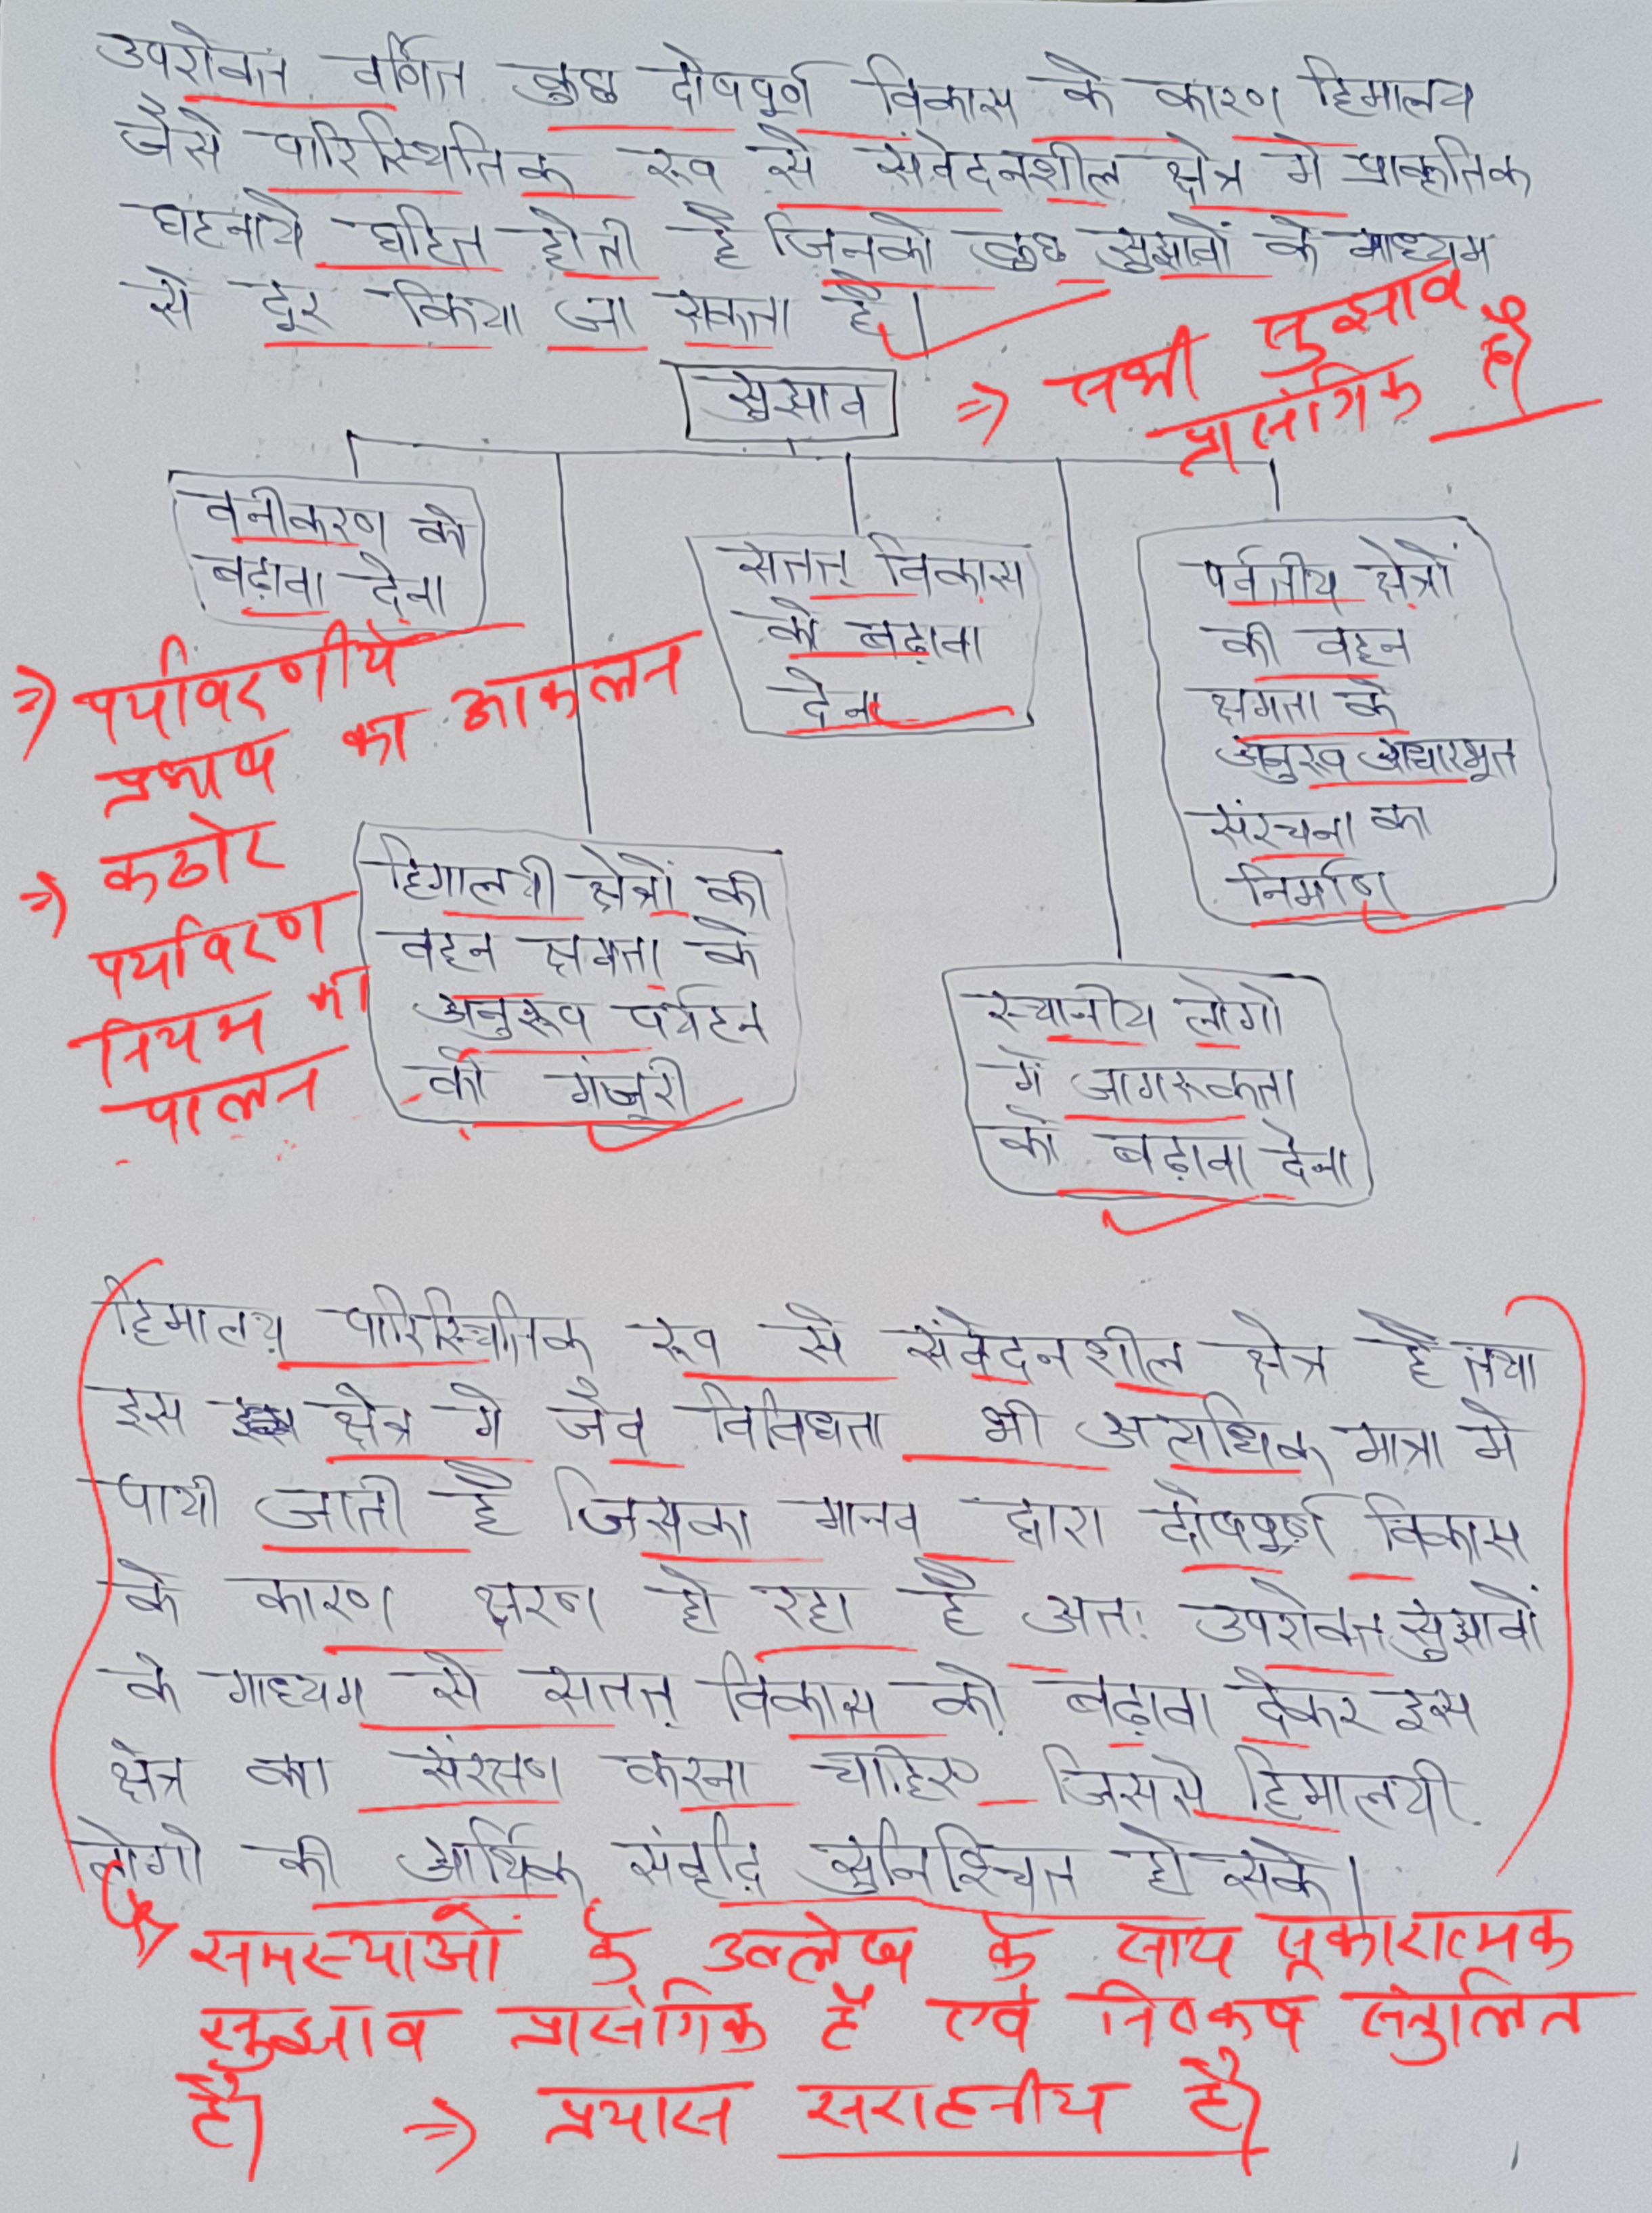 उपरोक्त वर्णित कुछ दोषपूर्ण विकास के कारण हिमालय
जैसे पारिस्थितिक रूप से संवेदनशील क्षेत्र मे प्राकृतिक
घटनाये घटित होती है जिनको कुछ सुझावों के माध्यम
से दूर किया जा सकता है।
सुझाव
⇒ सभी सुझाव
प्रासंगिक है।
वनीकरण को
बढ़ावा देना
सतत् विकास
को बढ़ावा
देना
पर्वतीय क्षेत्रों
की वहन
क्षमता के
अनुरूप आधारभूत
संरचना का
निर्माण
⇒ पर्यावरणीय
प्रभाव का आकलन
⇒ कठोर
पर्यावरण
नियम का
पालन
हिमालयी क्षेत्रों की
वहन क्षमता के
अनुरूप पर्यटन
को मंजूरी
स्थानीय लोगो
में जागरूकता
को बढ़ावा देना
हिमालय पारिस्थितिक रूप से संवेदनशील क्षेत्र है तथा
इस क्षेत्र मे जैव विविधता भी अत्यधिक मात्रा मे
पायी जाती है जिसका मानव द्वारा दोषपूर्ण विकास
के कारण क्षरण हो रहा है अतः उपरोक्त सुझावों
के माध्यम से सतत् विकास को बढ़ावा देकर इस
क्षेत्र का संरक्षण करना चाहिए जिससे हिमालयी
लोगो की आर्थिक संवृद्धि सुनिश्चित हो सके।
समस्याओं के उल्लेख के साथ सकारात्मक
सुझाव प्रासंगिक है एवं निष्कर्ष संतुलित
है। ⇒ प्रयास सराहनीय है।